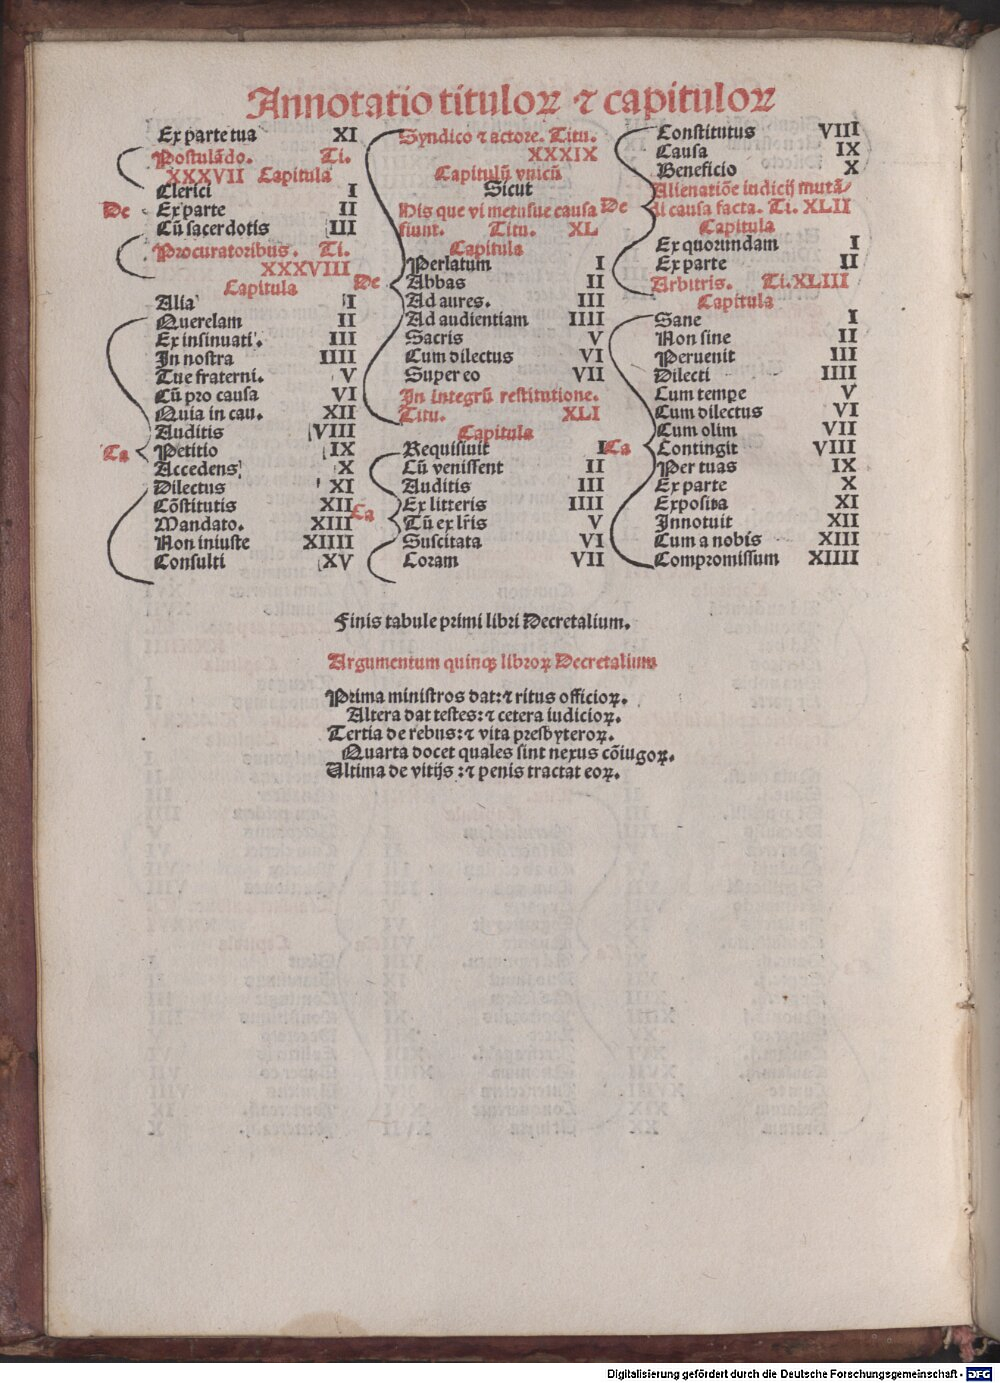 Annotatio tituloꝝ ⁊ capituloꝝ
Ex parte tua XI
Postulãdo. Ti.
XXXVII Capitula
Clerici I
De Ex parte II
Cũ sacerdotis III
Procuratoribus. Ti.
XXXVIII
Capitula
Alia I
Querelam II
Ex insinuati. III
In nostra IIII
Tue fraterni. V
Cũ pro causa VI
Quia in cau. XII
Auditis VIII
Ca Petitio IX
Accedens X
Dilectus XI
Cõstitutis XII
Mandato. XIII
Non iniuste XIIII
Consulti XV
Syndico ⁊ actore. Titu.
XXXIX
Capitulũ vnicũ
Sicut
His que vi metusue causa
fiunt. Titu. XL
Capitula
Perlatum I
De Abbas II
Ad aures. III
Ad audientiam IIII
Sacris V
Cum dilectus VI
Super eo VII
In integrũ restitutione.
Titu. XLI
Capitula
Requisiuit I
Cũ venissent II
Auditis III
Ex litteris IIII
Ca Tũ ex lr̃is V
Suscitata VI
Coram VII
Constitutus VIII
Causa IX
Beneficio X
Alienatiõe iudicij mutã/
De di causa facta. Ti. XLII
Capitula
Ex quorundam I
Ex parte II
Arbitris. Ti. XLIII
Capitula
Sane I
Non sine II
Peruenit III
Dilecti IIII
Cum tempe V
Cum dilectus VI
Cum olim VII
Ca Contingit VIII
Per tuas IX
Ex parte X
Exposita XI
Innotuit XII
Cum a nobis XIII
Compromissum XIIII
Finis tabule primi libri Decretalium.
Argumentum quinqꝫ libroꝝ Decretalium
Prima ministros dat:⁊ ritus officioꝝ.
Altera dat testes:⁊ cetera iudicioꝝ.
Tertia de rebus:⁊ vita presbyteroꝝ.
Quarta docet quales sint nexus cõiugoꝝ.
Ultima de vitijs :⁊ penis tractat eoꝝ.
Digitalisierung gefördert durch die Deutsche Forschungsgemeinschaft - DFG